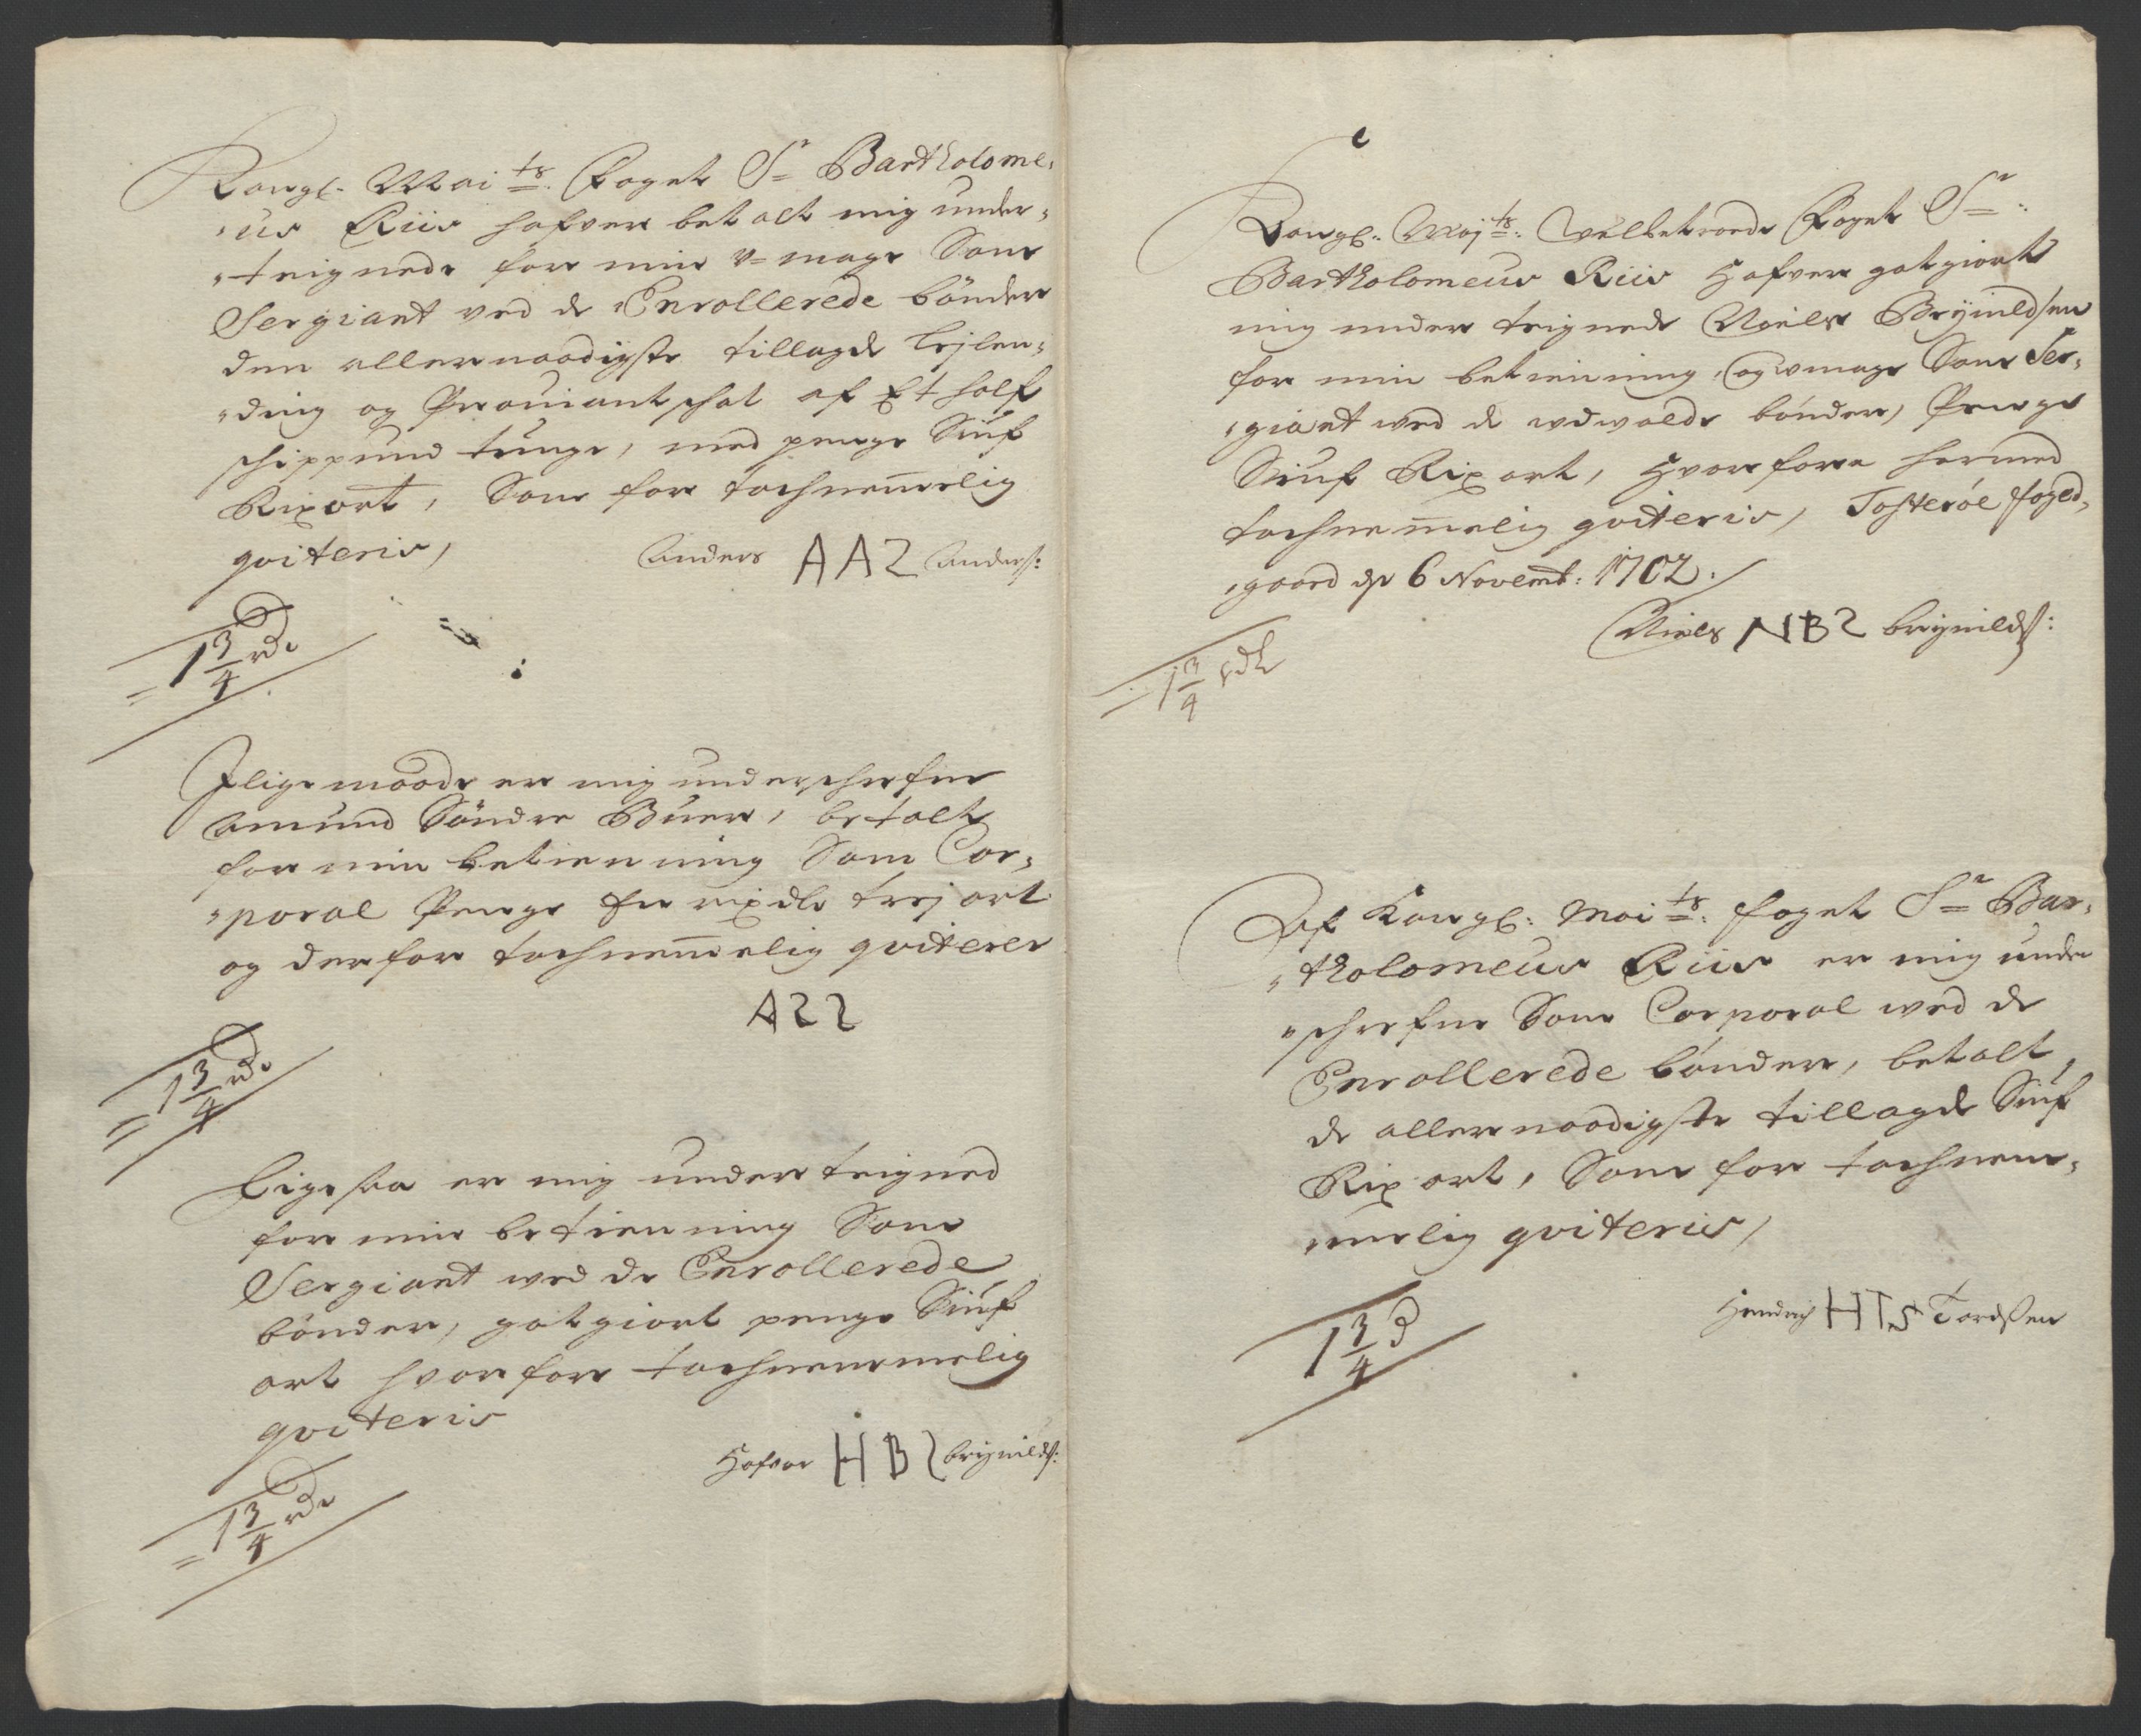 Kongl: Mai ts: Foget Sr Bartholome,
"us Riis hafver betalt mig under,
"teignede for min u=mage Som
Sergiant ved de Enrollerede bönder
den allernaadigste tillagde Lejlen,
"ding og Proviantschat af Et half
schippund tunge, med penge Siuf
Rixort, Som for tachnemelig
qviteris,
Anders AAS Anders:
1 3/4 rdr
Jligemaade er mig underschrefne
Amund Söndre Buer, betalt
for min betienning Som Cor,
"poral Penge En rixdlr trej ort
og derfor tachnemelig qviterer
ASS
1 3/4 rdr
Ligesaa er mig underteigned
for min betienning Som
Sergiant wed de Enrollerede
bönder, gotgiort penge Siuf
ort hvorfor tachnemmelig
qviteris
Hafvor HBS brynilds:
1 3/4 rdr
Kongl: Maj ts: Velbetroede Foget Sr:
Bartholomeus Riis Hafver gotgiort
mig under teignede Niels Brynildsen
for min betienning, og umage Som Ser,
"giant wed de udvalde bönder, Penge
Siuf Rix ort, Hvorfore hermed
tachnemelig qviteris, Tosteröe foged,
"gaard d: 6 Novemb: 1702.
Niels NBS brynilds:
1 3/4 rdl
Af Kongl: Mai ts: foget Sr Bar,
"tholomeus Riis er mig under
"schrefne Som Corporal wed de
Enrollerede bönder, betalt,
de allernaadigste tillagde Siuf
Rix ort, Som for tachnem,
"melig qviteris,
Hendrich HTS Tordsen
1 3/4 d